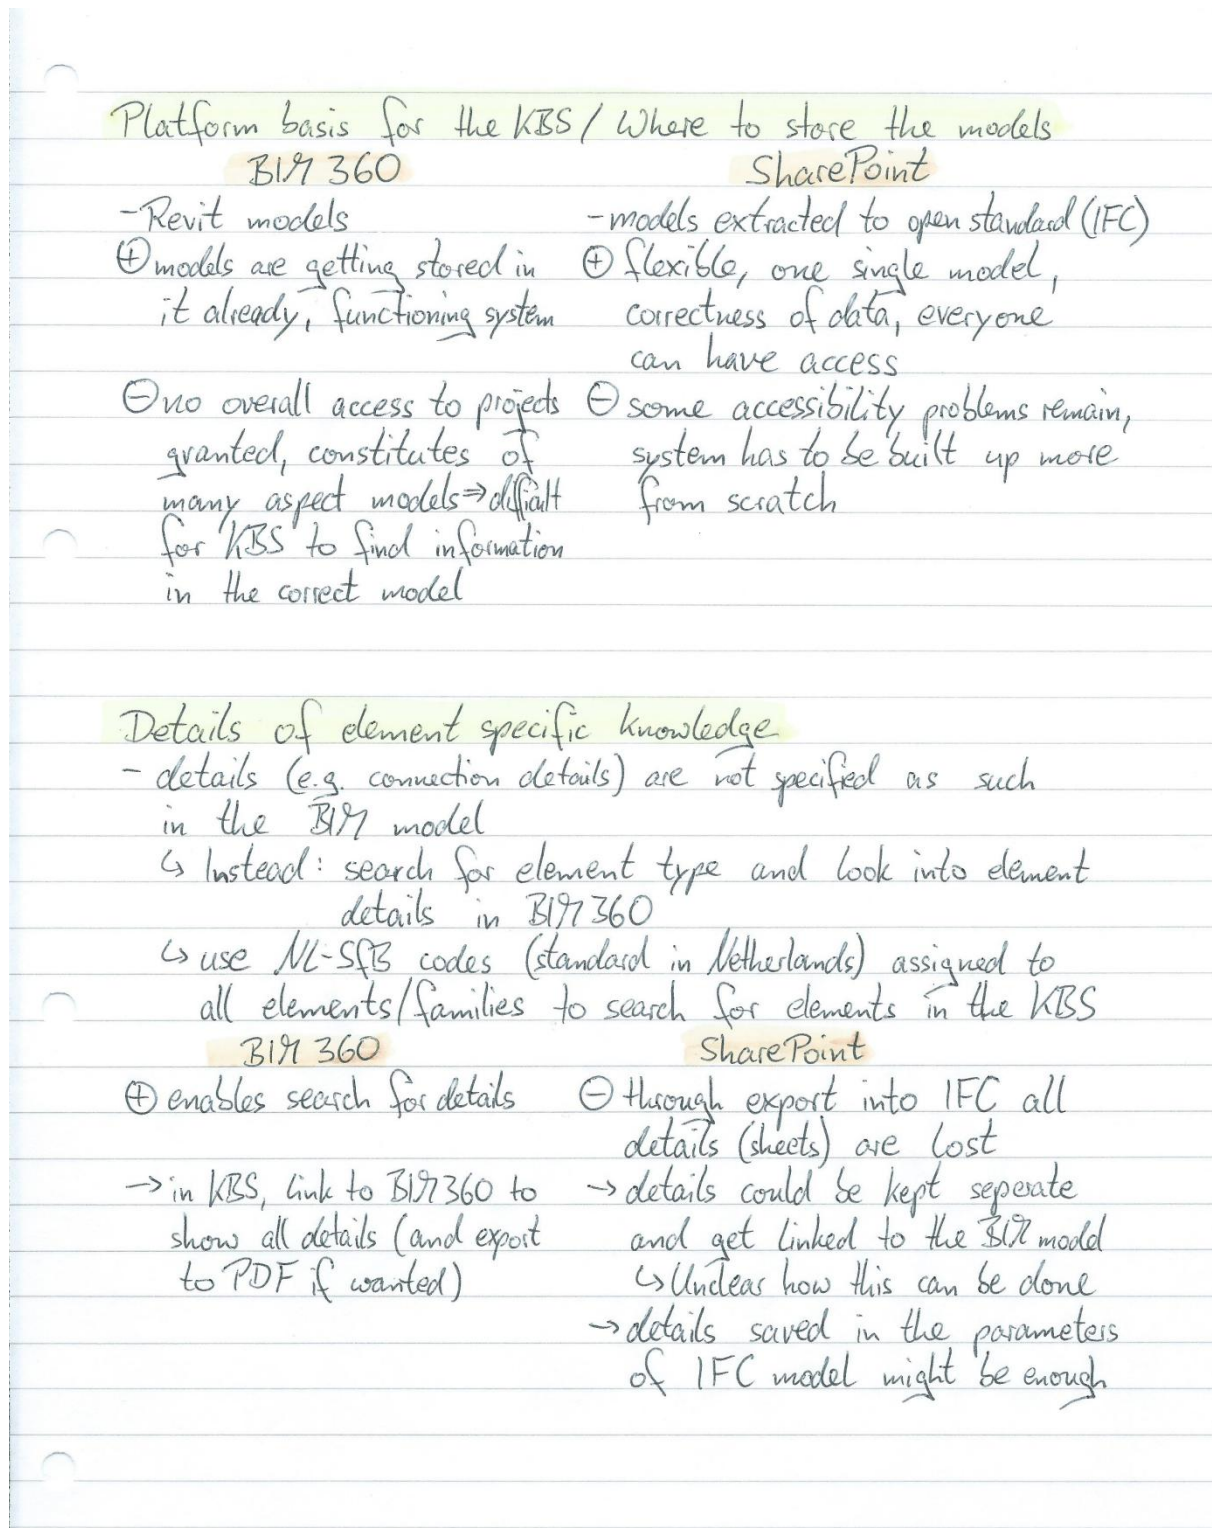 Platform basis for the KBS / Where to store the models
BIM 360
- Revit models
⊕ models are getting stored in
it already, functioning system
⊖ no overall access to projects
granted, constitutes of
many aspect models ⇒ difficult
for KBS to find information
in the correct model
SharePoint
- models extracted to open standard (IFC)
⊕ flexible, one single model,
correctness of data, everyone
can have access
⊖ some accessibility problems remain,
system has to be built up more
from scratch
Details of element specific knowledge
- details (e.g. connection details) are not specified as such
in the BIM model
↳ Instead: search for element type and look into element
details in BIM 360
↳ use NL-SfB codes (standard in Netherlands) assigned to
all elements/families to search for elements in the KBS
BIM 360
⊕ enables search for details
→ in KBS, link to BIM 360 to
show all details (and export
to PDF if wanted)
SharePoint
⊖ through export into IFC all
details (sheets) are lost
→ details could be kept seperate
and get linked to the BIM model
↳ Unclear how this can be done
→ details saved in the parameters
of IFC model might be enough